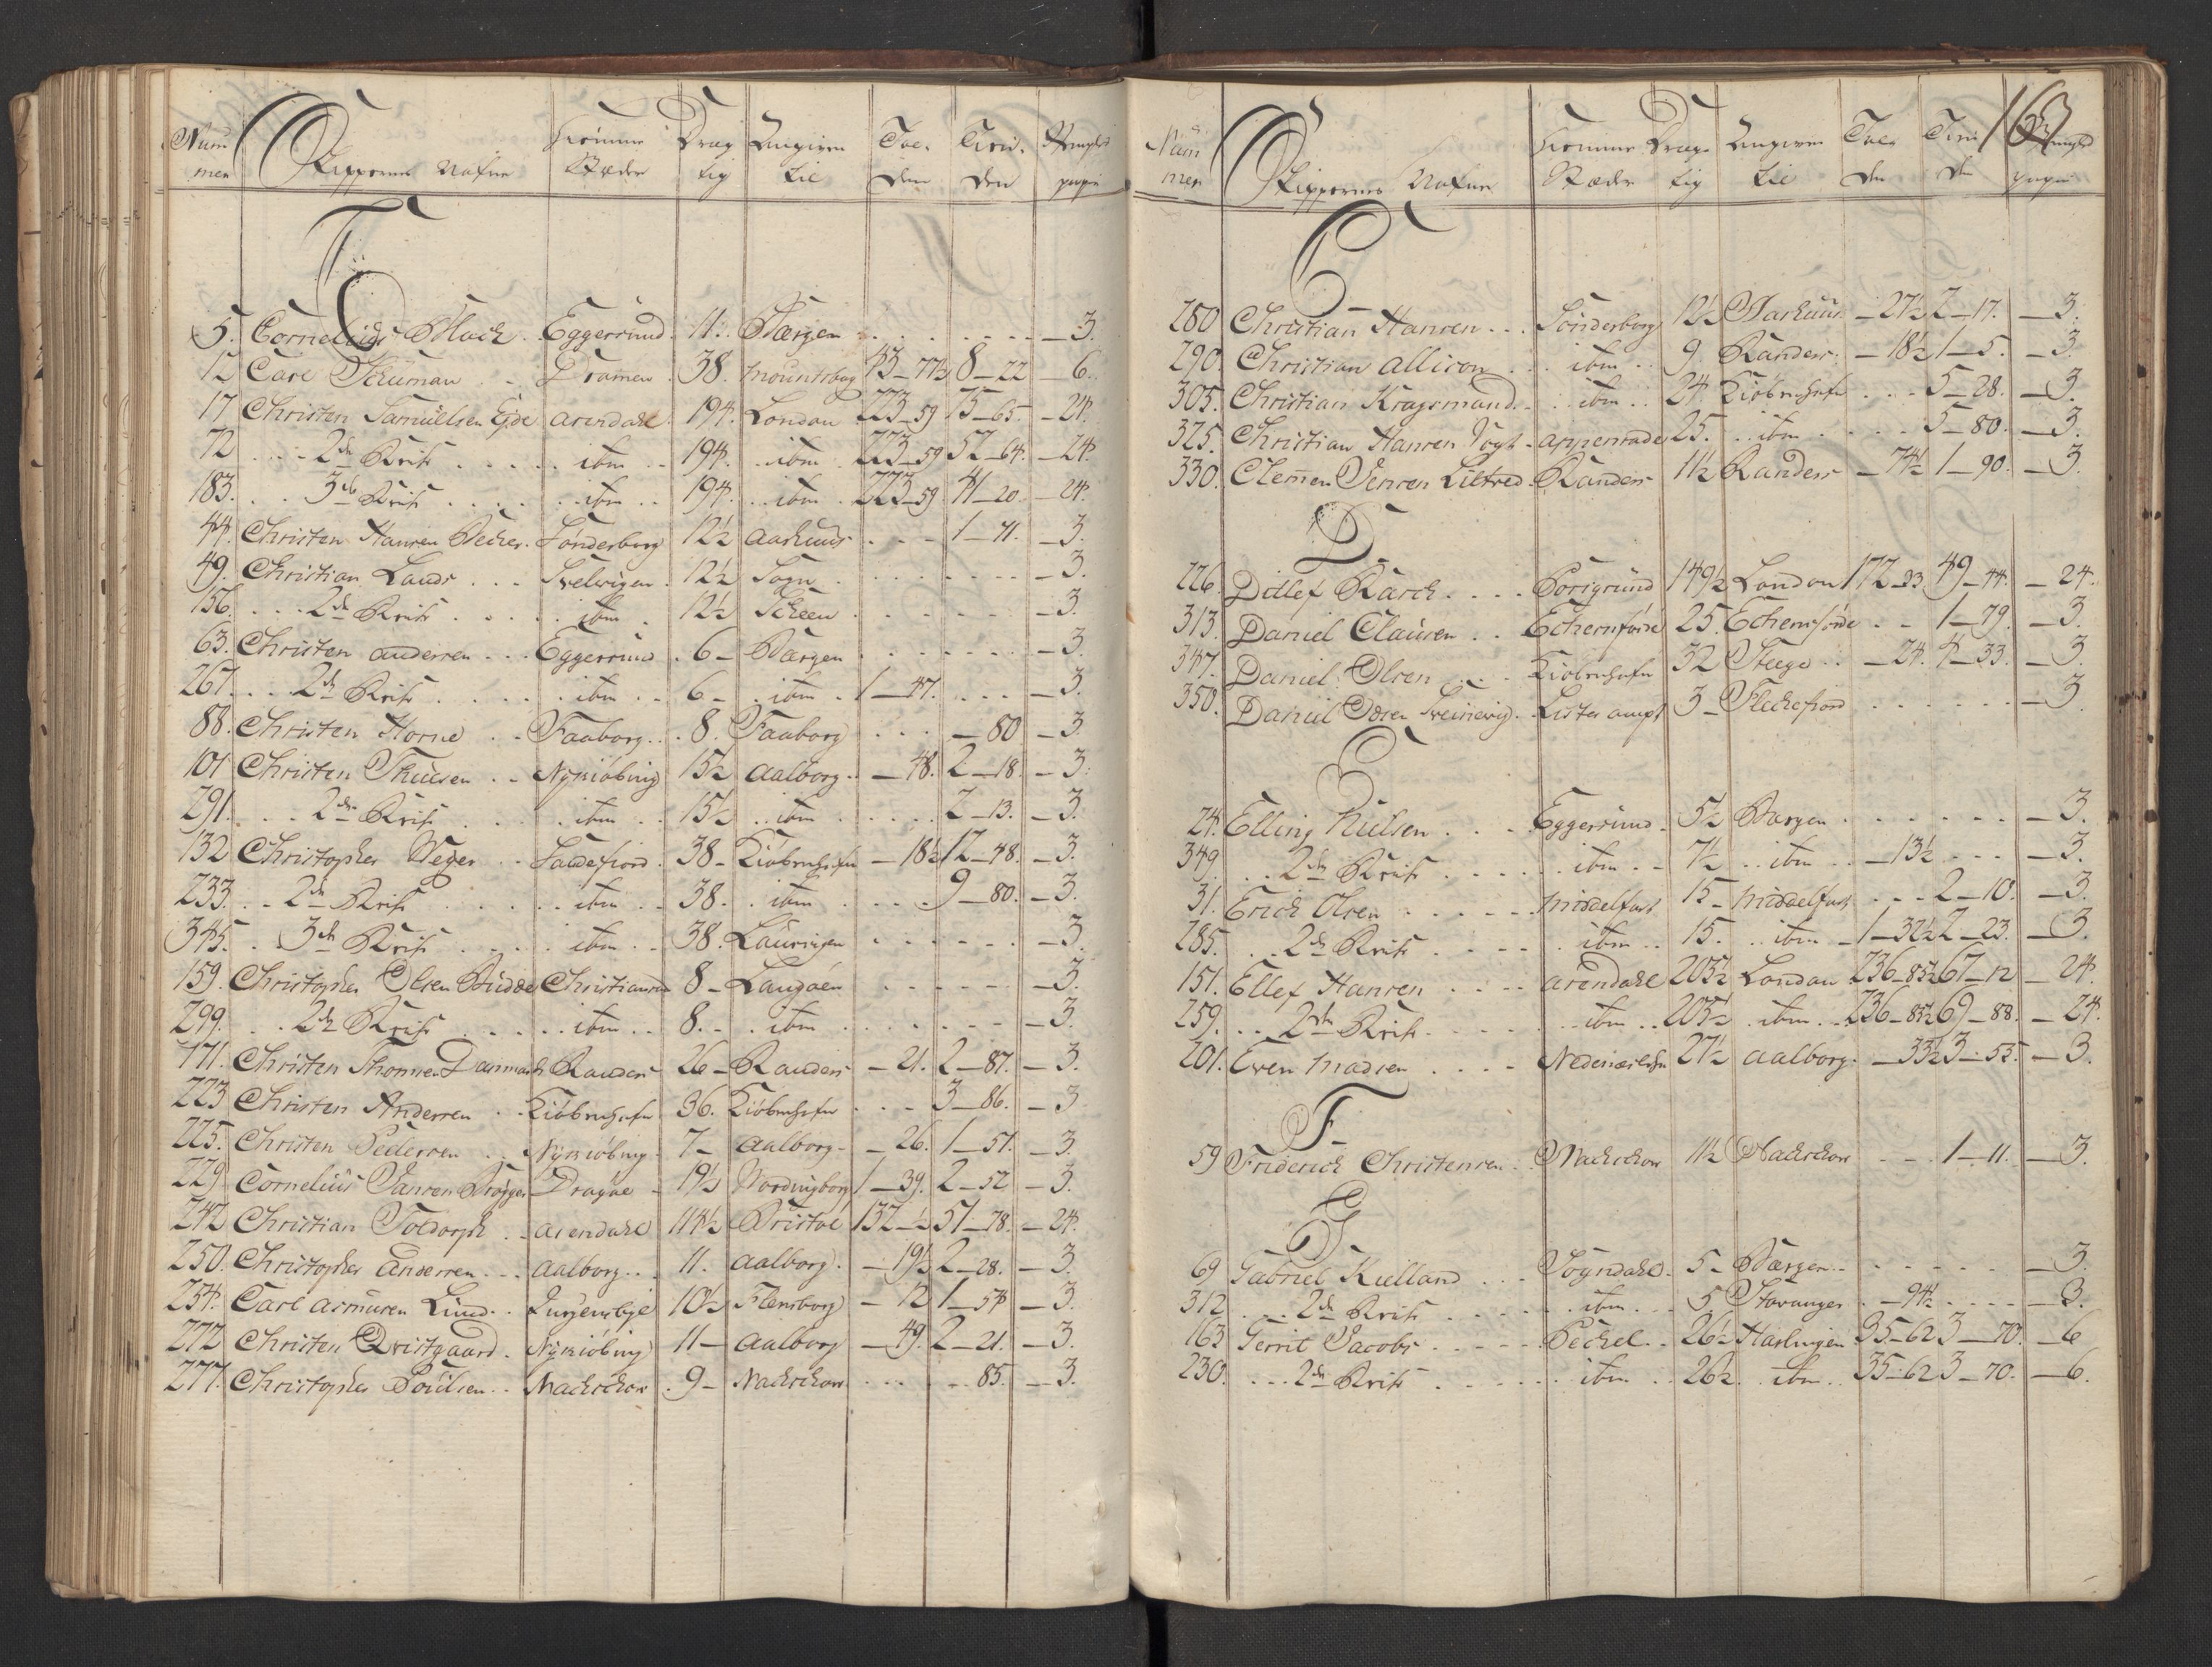 Num Skippernes Nafne Hiemme Dræg Angiven Tol Tien Stemplet
mer Stæder tig til den den papir
C
5. Cornelius Block . Eggersund . 11. Bergen . . . . . . — 3.
12 Carl Schuman . . Dramen . 38. Mountsbay 43—77½ 8—22 — 6.
17 Christen Samuelsen Eyde Arendahl 194. London 223—59 75—65. — 24.
72 . . . 2de Reise . . . . ibm . . 194. . ibm . 223—59 52—64. — 24.
183. . . 3de Reise . . . . ibm . . 194. . ibm . 223—59 41—20. — 24.
44. Christen Hansen Becher. Sønderborg 12½ Aarhuus . . . 1—71. — 3.
49. Christian Lands . . . Svelvigen . 12½ Sogn . . . . . . — 3.
156. . . . 2de Reise . . . . ibm . 12½ Scheen . . . . . . — 3.
63. Christen Andersen . . . Eggersund . 6 — Bergen . . . . . . — 3.
267. . . 2de Reise . . . . ibm . . 6 — . ibm . 1—47. . . . — 3.
88. Christen Horne . . Faaborg . . 8. Faaborg . . . — 80 — 3.
101 Christen Thuesen . . Nykiøbing 15½ Aalborg . — 48. 2—18. — 3.
291. . . 2de Reise . . . . ibm . . 15½ . . ibm . . . . 2—13. — 3.
132 Christopher Weyer . . Sandefiord . 38 — Kiøbenhafn — 18½ 12—48. — 3.
233. . . 2de Reise . . . . ibm . . 38. . ibm . . . . 9—80. — 3.
345. . 3de Reise . . . . ibm . . 38. Laurvigen . . . . . . — 3.
159. Christopher Olsen Budde Christiansund 8 — Langøen . . . . . . — 3.
299. . . 2de Reise . . . . ibm . . 8. — . ibm . . . . . . — 3.
171. Christen Thomsen Danmark Randers 26 — Randers — 21. 2—87. — 3.
223 Christen Andersen . . Kiøbenhafn 36. Kiøbenhafn . . . 3—86. — 3
225. Christen Pedersen . . Nykiøbing . 7 — Aalborg . — 26. 1—51. — 3.
229 Cornelius Jansen Brøgger Dragøe — 19½ Wordingborg 1—39. 2—52 — 3.
242 Christian Toldorph . . Arendahl 114½ Bristol 132—½ 51—78. — 24.
250. Christopher Andersen . . . Aalborg . . . 11. Aalborg . — 19½ 2—28. — 3.
254. Carl Asmusen Lund . . Jurgensbye 10½ Flensborg — 12 1—54 — 3.
272 Christen Qvistgaard . Nykiøbing 11 — Aalborg — 49. 2—21. — 3.
277. Christopher Poulsen . . Nachschow . 9 — Nachschow . . . . — 85. — 3.
163
Num Skippernes Nafne Hiemme Dræg Angiven Tol Tien Stemplet
mer Stæder tig til den den papir
C
280 Christian Hansen . . . Sønderborg 12½ Aarhuus — 27½ 2—17. — 3.
290. Christian Allison . . . ibm . . 9. Randers . — 18½ 1—5. — 3.
305. Christian Kragsmand . . . ibm . . 24. Kiøbenhafn . . . 5—28. — 3.
325. Christian Hansen Vogt . Appenrade 25. . . ibm . . . . 5—80. — 3.
330. Clemen Jensen Liltved . Randers 11½ Randers — 74½ 1—90. — 3.
D
226. Ditlef Karch . . . . Porsgrund 149½ London 172—33. 49—44. — 24.
313. Daniel Clausen . . Echernførde 25. Echernførde . . 1—79. — 3.
347. Daniel Olsen . . . Kiøbenhafn 32 Steege . . — 24. 4—33. — 3.
350. Daniel Osen . Lister Ampt 3 — Flechefiord . . . . . . — 3.
E
24. Elling Nielsen . . . Eggersund . 5½ Bergen . . . . . . — 3.
349. . . 2de Reise . . . . ibm . . 7½ . . ibm . . — 13½ . . . — 3.
31. Erich Olsen . . . . . Middelfart 15 — Middelfart . . . 2—10. — 3.
285. . . 2de Reise . . . . ibm . . 15. . . ibm — 1—32½ 2—23. — 3.
151. Ellef Hansen . . . . Arendahl 205½ London 236—83½ 67—12 — 24.
259. . . 2de Reise . . . . ibm . . 205½ . ibm . . 236—83½ 69—88. — 24.
201. Even Madsen . . . . Nedenæs Lehn 27½ Aalborg . — 33½ 3—53. — 3.
F
59 Friderich Christensen . . Nachschow 11½ Nachschow . . . 1—11. — 3.
G
69 Gabriel Kielland . . . Sogndahl . 5 — Bergen . . . . . . — 3.
312 . . . 2de Reise . . . . ibm . . . 5. Stavanger . — 94½ . . . — 3.
163 Gerrit Jacobs . . . . . Pechel . . 26½ Harlingen 35—62 3—70. — 6
230. . . . 2de Reise . . . . ibm . . 26½ . ibm . . 35—62 3—70. — 6.